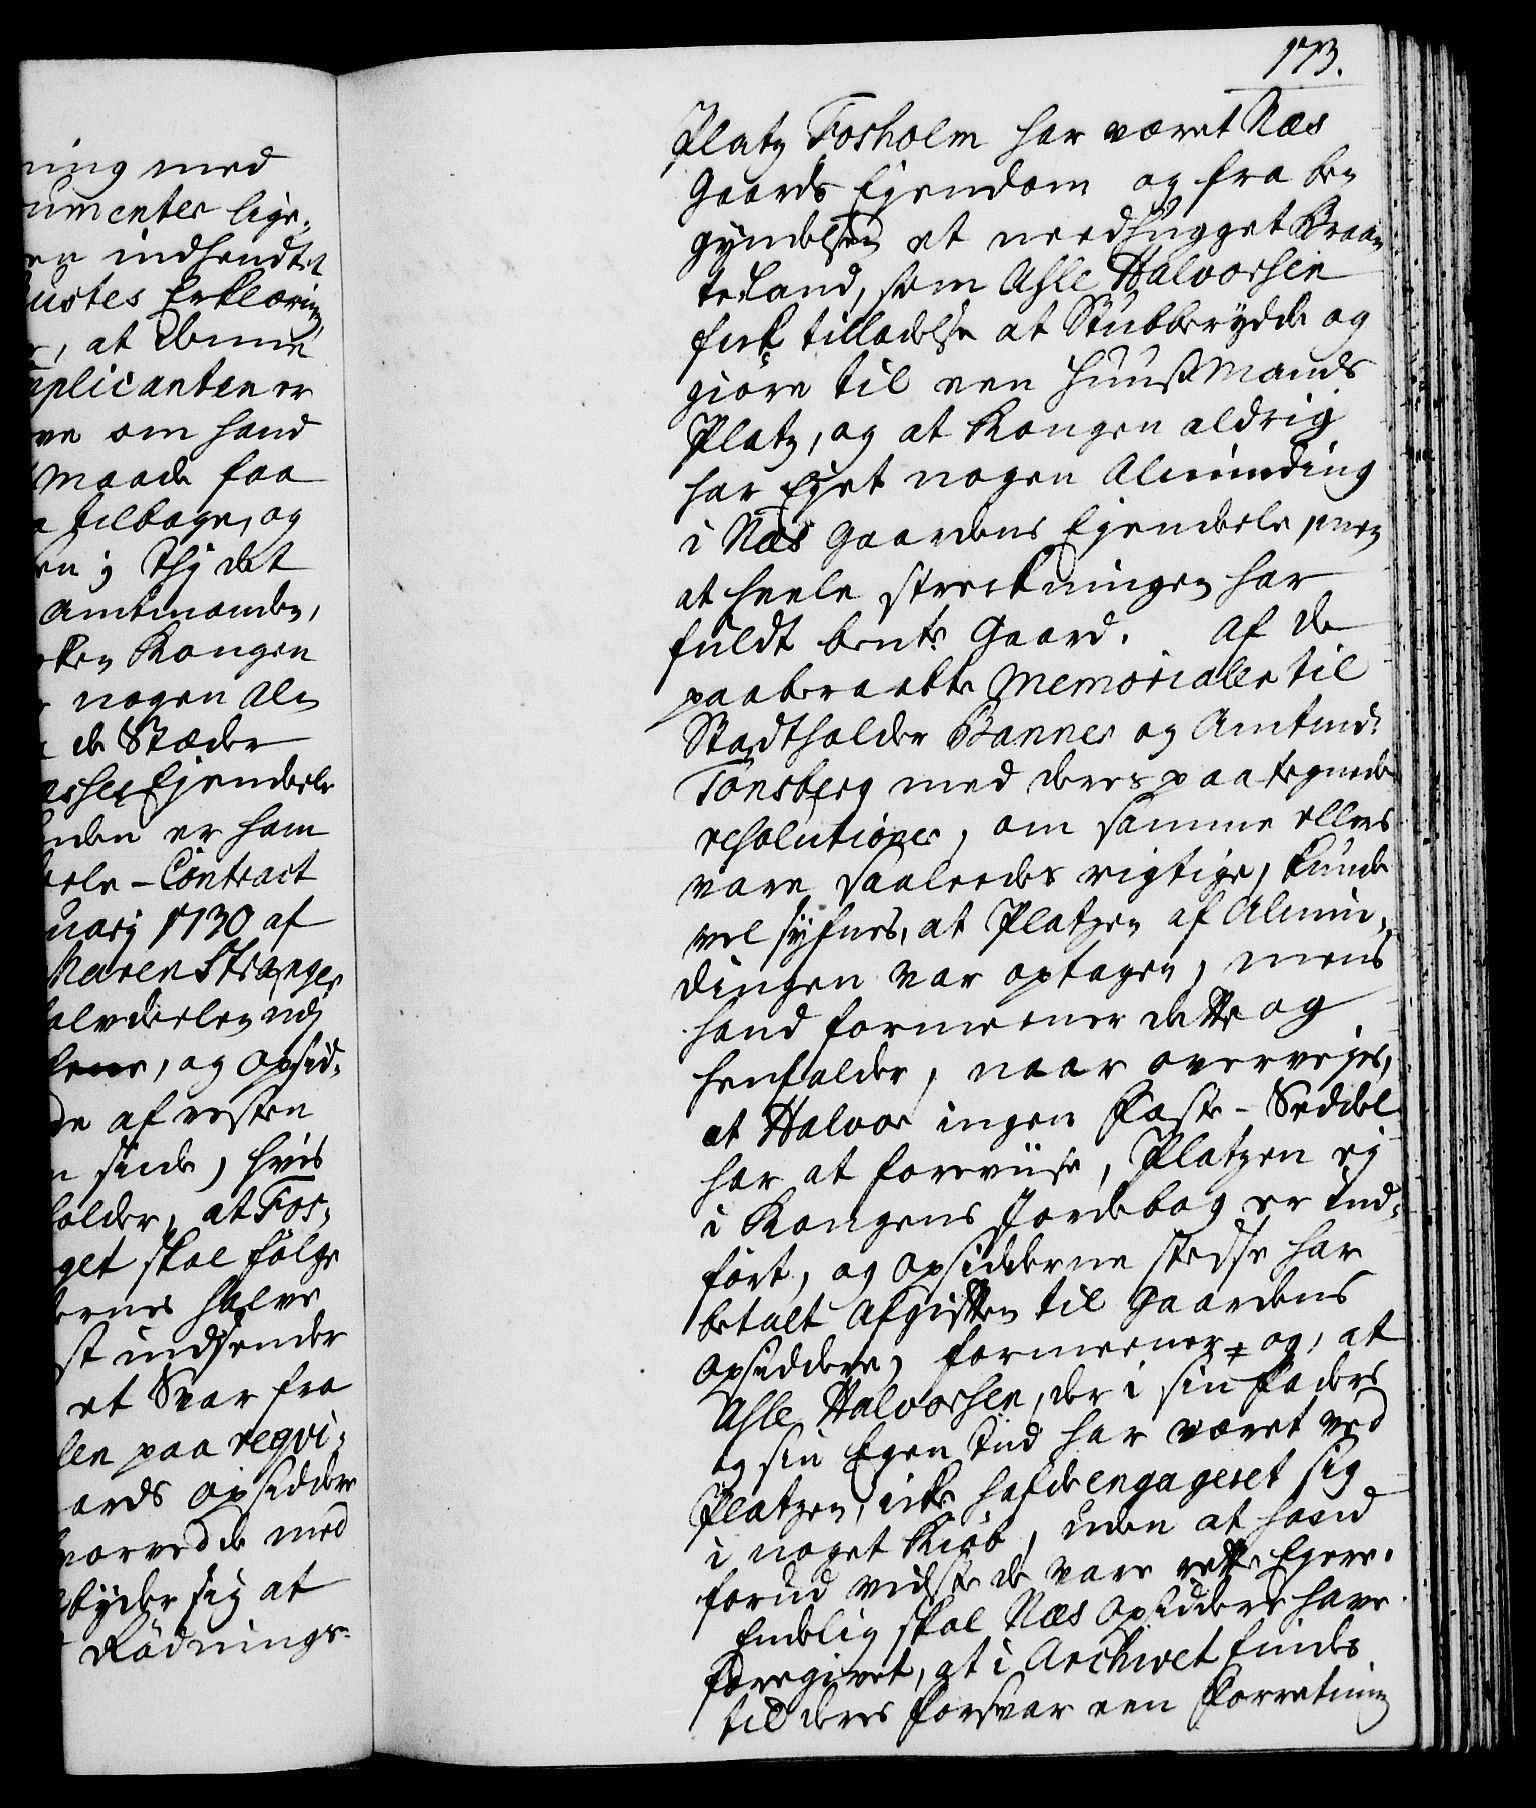 ning med
umenter lige-
en indhendtet
ustes Erklæring
, at denne
plicanten er
ve om hand
Maade faa
tilbage, og
en; Thj det
Amtmanden,
Kongen
nogen Al-
de Stæder
Ejendeele
nden er ham
eele-Contract
uarj 1730 af
Maren Stranger
alvdeelen udj
, og Opsid-
de af resten
n siide, hvis
older, at Fos-
get skal følge
ernes halve
st indsender
et Svar fra
len paa reqvi-
ards Opsiddere
vorved de med
byder sig at
Rødnings-
173.
Platz Fosholm har været Næs
Gaards Ejendom og fra be-
gyndelsen et needhugget Braa-
teLand, som Ahle Halvorsen
fick tilladelse at Stubberydde og
giøre til een HuusMands
Platz, og at Kongen aldrig
har Ejet nogen Alminding
i Næs Gaardens Ejendeele, men
at heele streckningen har
fuldt bente Gaard. Af de
paaberaabte Memorialer til
Stadtholder Banner og Amtmd:
Tonsberg med deres paategnede
resolutioner, om samme ellers
vare saaleedes rigtige, kunde
vel syfnes, at Platzen af Almin-
dingen var optagen, mens
hand formeener dette og
henfalder, naar overvejes,
at Halvor ingen Fæste-Seddel
har at foreviise, Platzen ej
i Kongens Jordebog er Ind-
ført, og Opsidderne stedse har
betalt Afgiften til Gaardens
Opsiddere, formeener og, at
Ahle Halvorsen, der i sin Faders
og sin Egen Tiid har været ved
Platzen, icke hafde engageret sig
i noget Kiøb, uden at hand
forud vidste de vare rette Ejere.
Endelig skal Næs Opsiddere have
foregivet, at i Archivet findes
til deres Forsvar een Forretning